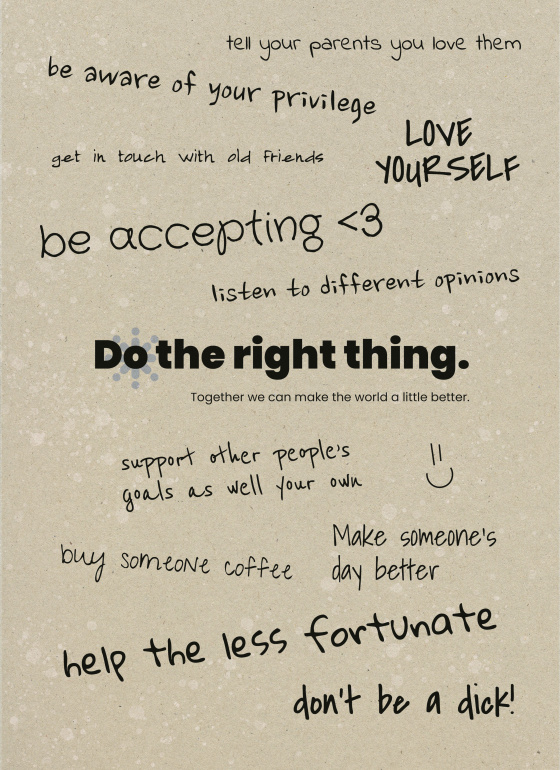 tell your parents you love them
be aware of your privilege
LOVE
YOURSELF
get in touch with old friends
be accepting <3
listen to different opinions
Do the right thing.
Together we can make the world a little better.
support other people's
goals as well your own
Make someone's
day better
buy someone coffee
help the less fortunate
don't be a dick!